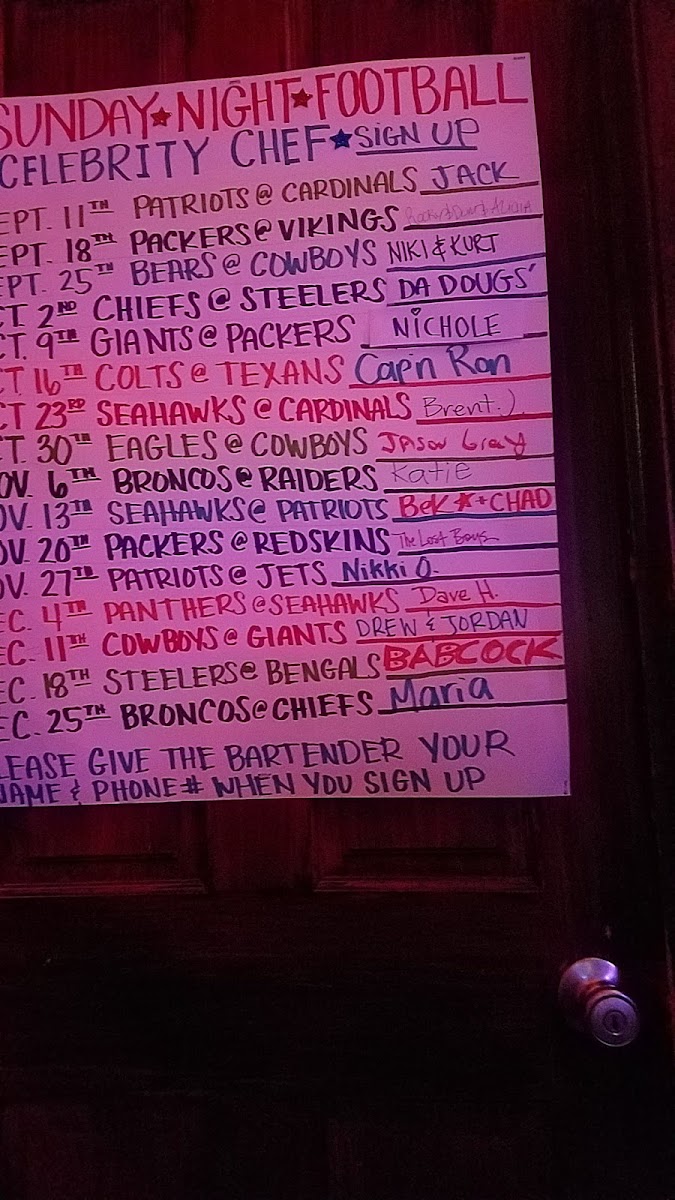 SUNDAY★NIGHT★FOOTBALL
CELEBRITY CHEF★SIGN UP
EPT. 11TH PATRIOTS @ CARDINALS JACK
EPT. 18TH PACKERS @ VIKINGS
EPT. 25TH BEARS @ COWBOYS NIKI & KURT
CT 2ND CHIEFS @ STEELERS DA DOUGS'
CT. 9TH GIANTS @ PACKERS NiCHOLE
CT 16TH COLTS @ TEXANS Cap'n Ron
CT 23RD SEAHAWKS @ CARDINALS Brent.)
T. 30TH EAGLES @ COWBOYS JASON Gray
OV. 6TH BRONCOS @ RAIDERS Katie
OV. 13TH SEAHAWKS @ PATRIOTS BeK ★+CHAD
OV. 20TH PACKERS @ REDSKINS The Lost Boys
OV. 27TH PATRIOTS @ JETS Nikki O.
EC. 4TH PANTHERS @ SEAHAWKS Dave H.
EC. 11TH COWBOYS @ GIANTS DREW & JORDAN
EC. 18TH STEELERS @ BENGALS BABCOCK
EC. 25TH BRONCOS @ CHIEFS Maria
LEASE GIVE THE BARTENDER YOUR
NAME & PHONE # WHEN YOU SIGN UP